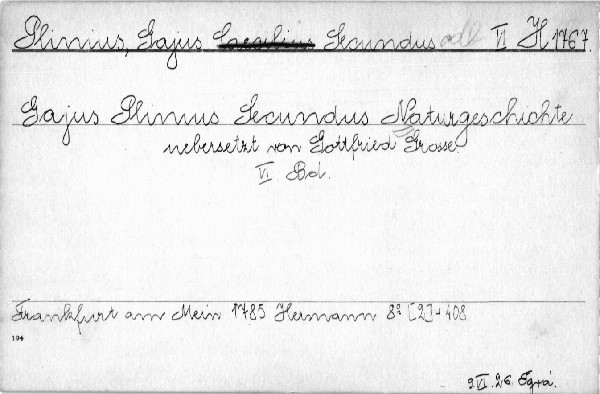 Plinius, Gajus Caecilius Secundus VI H 1767.
Gajus Plinius Secundus Naturgeschichte
uebersetzt von Gottfried Grosse.
VI. Bd.
Frankfurt am Mein 1785 Hermann 8º [2]+408
194
9 VI. 26.